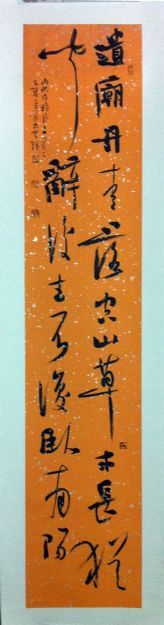 遺廟丹青落空山草木長猶
聞辭後主不復臥南陽